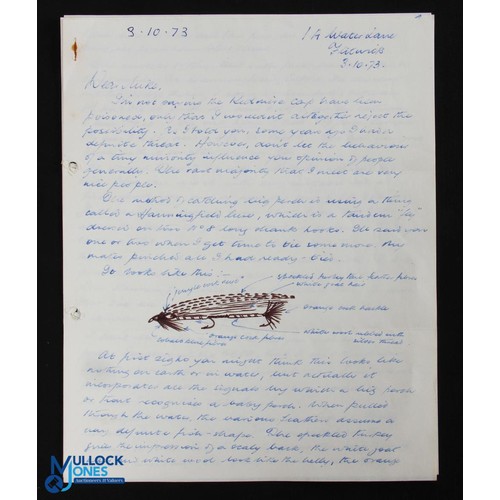 3.10.73
Water Lane
3.10.73.
Dear Mike,
I'm not saying the Redmire carp have been
poisoned, only that I wouldn't altogether reject the
possibility. As I told you, some years ago I had a
definite threat. However, don't let the behaviour
of a tiny minority influence your opinion of people
generally. The vast majority that I meet are very
nice people.
method of catching big perch is using a thing
called a Hanningfield lure, which is a tandem "fly"
dressed on two Nº 8 long shank hooks. I'll send you
one or two when I get time to tie some more. The
I had ready-tied.
It looks like this :-
speckled turkey
white goat hair
orange cock hackle
white wool
orange cock
At first sight you might think this looks like
nothing on earth or in water, but actually it
incorporates all the signals by which a big perch
or trout recognises a baby perch. When pulled
through the water, the various feathers assume a
very definite fish-shape. The speckled turkey
give the impression of a scaly back, the white goat
and white wool look like the belly, the orange
MULLOCK
JONES
Auctioneers & Valuers